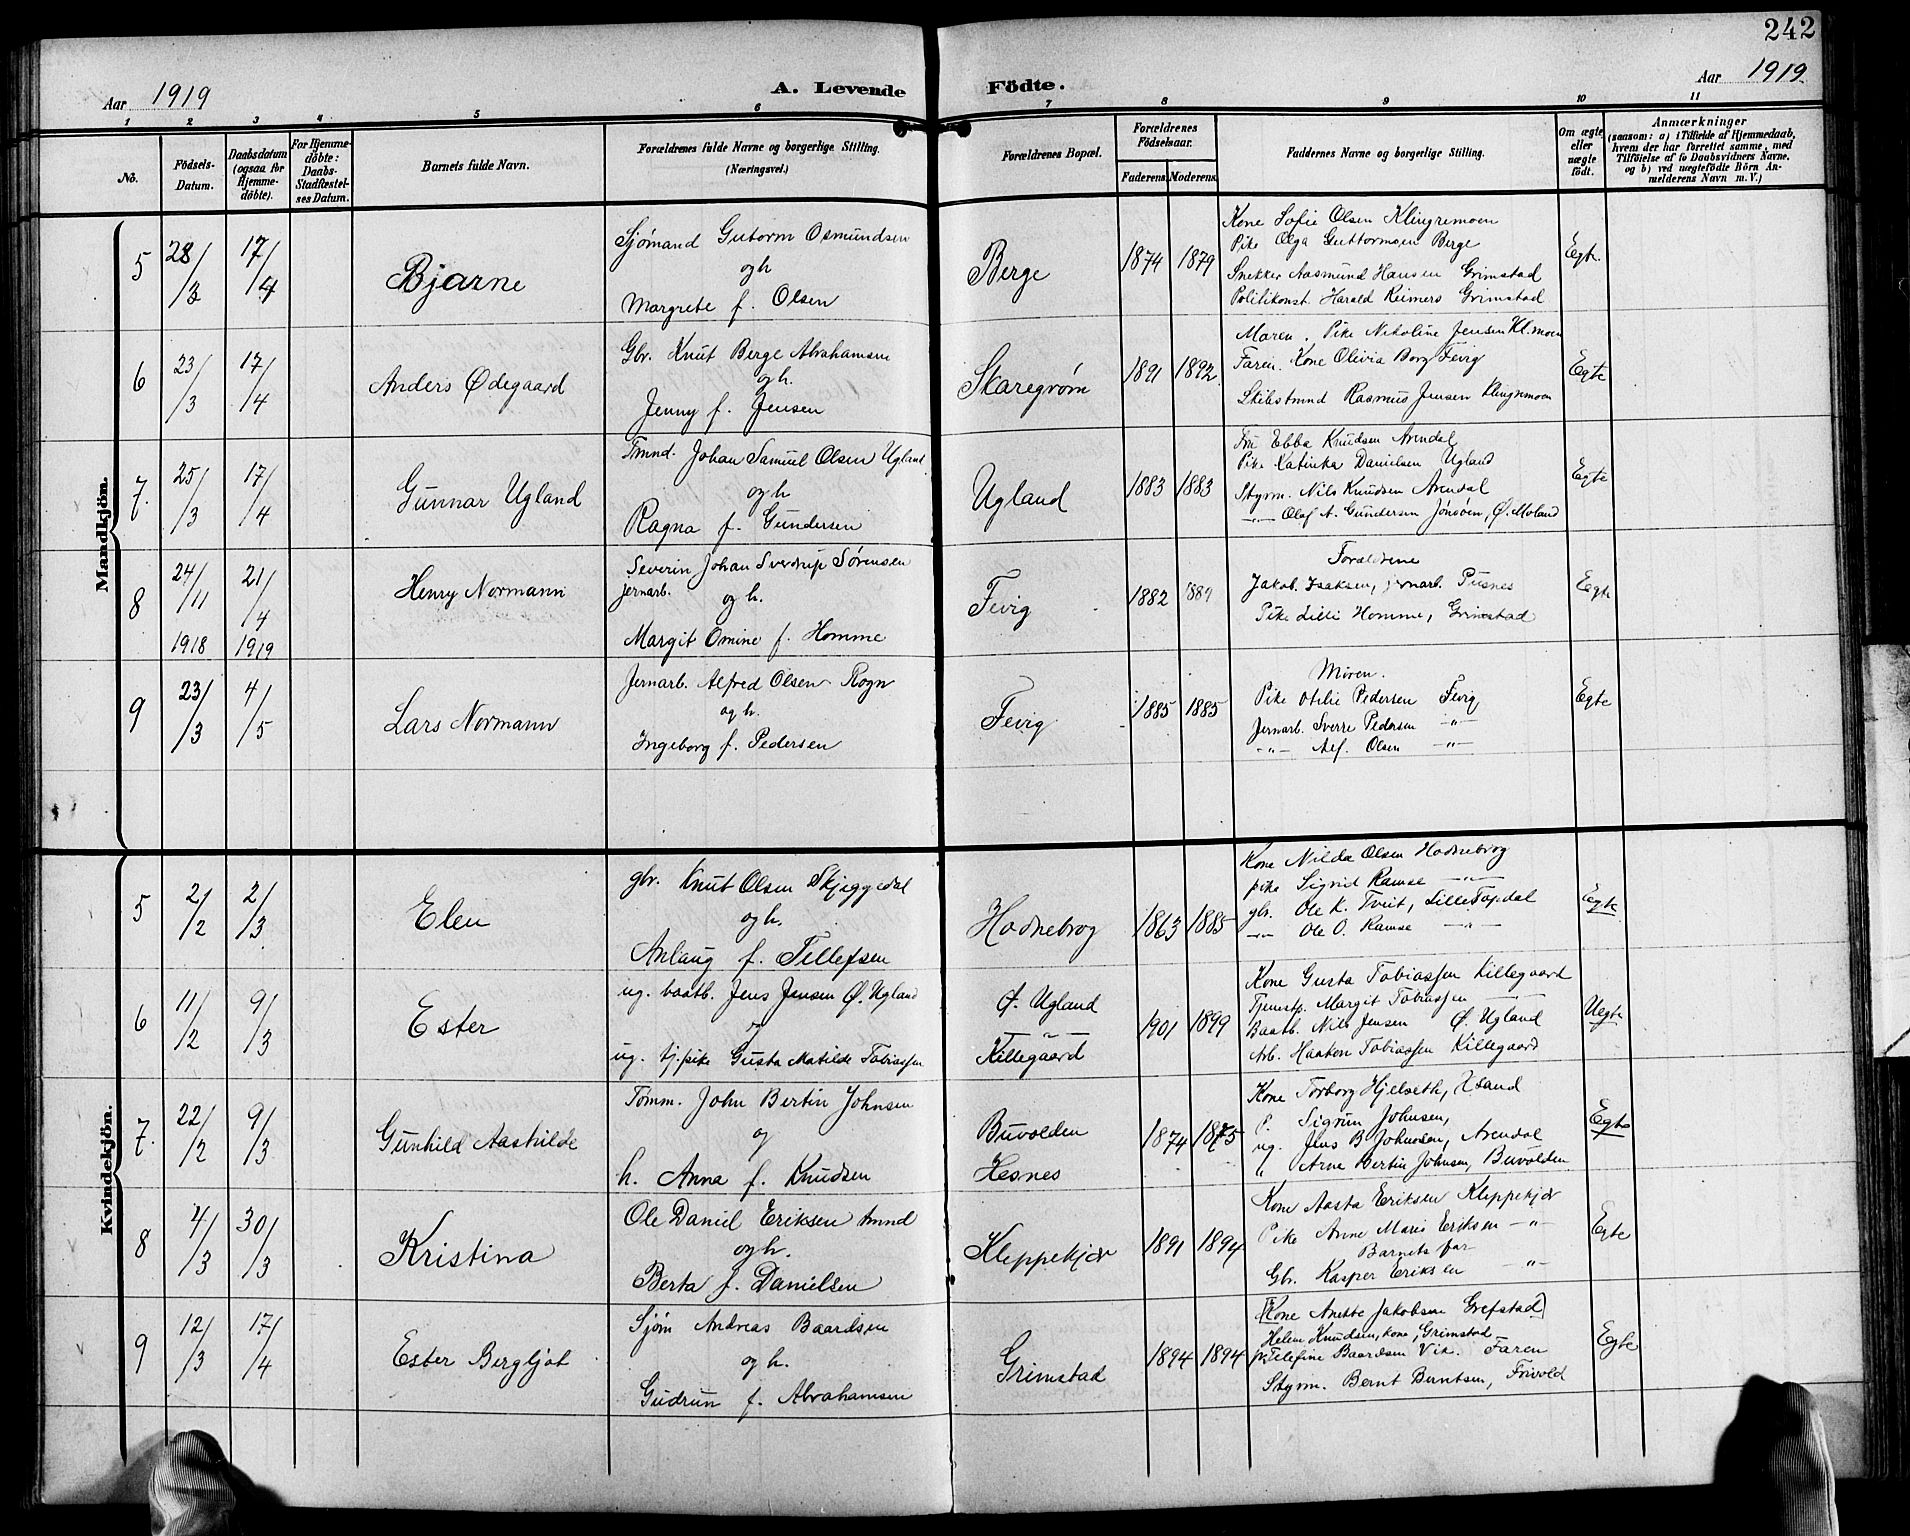 242
Aar 1919 A. Levende Födte. Aar 1919.
1 2 3 4 5 6 7 8 9 10 11
No. Födsels-Datum. Daabsdatum (ogsaa for Hjemmedöbte). For Hjemmedöbte: Daabs-Stadfæstelses Datum. Barnets fulde Navn. Forældrenes fulde Navne og borgerlige Stilling. (Næringsvei.) Forældrenes Bopæl. Forældrenes Födselsaar. Faderens. Moderens. Faddernes Navne og borgerlige Stilling. Om ægte eller uægte födt. Anmærkninger (saasom: a) i Tilfælde af Hjemmedaab, hvem der har forrettet samme, med Tilföielse af to Daabsvidners Navne, og b) ved uægtefödte Börn Anmelderens Navn m. V.)
Mandkjön.
5 28/3 17/4 Bjarne Sjømand Gutorm Osmundsen
og h
Margrete f. Olsen Berge 1874 1879 Kone Sofie Olsen Klingremoen
Pike Olga Guttormsen Berge
Snekker Aasmund Hansen Grimstad
Politikonst. Harald Reimers Grimstad Egt.
6 23/3 17/4 Anders Ødegaard Gbr. Knut Berge Abrahamsen
og h.
Jenny f. Jensen Skaregrøm 1891 1892. Moren, Pike Nikoline Jensen Kl.moen
Faren. Kone Olivia Borg Fevig
Skibstmnd Rasmus Jensen Klingremoen Egte
7. 25/3 17/4 Gunnar Ugland Tmnd. Johan Samuel Olsen Ugland
og h
Ragna f. Gundersen Ugland 1883 1883 Fru Ebba Knudsen Arendal
Pike Katinka Danielsen Ugland
Styrm. Nils Knudsen Arendal
—"— Olaf A. Gundersen Jonsøen, Ø. Moland Egte
8 24/11 1918 21/4 1919 Henry Normann Severin Johan Sverdrup Sørensen
jernarb. og h.
Margit Omine f. Homme Fevig 1882 1889 Forældrene
Jakob Isaksen, jernarb. Pusnes
Pike Lilli Homme, Grimstad Egte
9 23/3 4/5 Lars Normann Jernarb. Alfred Olsen Rogn
og h.
Ingeborg f. Pedersen Fevig 1885 1885 Moren.
Pike Otilie Pedersen Fevig
Jernarb. Sverre Pedersen —"—
—"— Alf. Olsen —"— Egte
Kvindekjön.
5 2/2 2/3 Elen gbr. Knut Olsen Skjeggedal
og h.
Anlaug f. Tellefsen Hodnebrog 1863 1885 Kone Nilda Olsen Hodnebrog
pike Sigrid Ramse —"—
gbr. Ole K. Tveit, LilleTopdal
—"— Ole O. Ramse —"— Egte
6 11/2 9/3 Ester ug. baatb. Jens Jensen Ø. Ugland
og
ug. tj.pike Gusta Matilde Tobiassen Ø. Ugland
—"—
Killegaard 1901 1899 Kone Gusta Tobiassen Killegaard
Tjenstp. Margit Tobiassen —"—
Baatb. Nils Jensen Ø. Ugland
Arb. Haakon Tobiassen Killegaard Uegte
7. 22/2 9/3 Gunhild Aashilde Tomm. John Bertin Johnsen
og
h. Anna f. Knudsen Buvolden
Hesnes 1874 1875 Kone Torborg Hjelseth, X.sand
P. Sigrun Johnsen,
ug. Jens B Johnsen, Arendal
" Arne Bertin Johnsen, Buvolden Egte
8 4/3 30/3 Kristina Ole Daniel Eriksen tmnd
og h.
Berta f. Danielsen Kleppekjær 1891 1894 Kone Aasta Eriksen Kleppekjær
Pike Anne Marie Eriksen —"—
Barnets far
Gbr. Kasper Eriksen —"— Egte
9 12/3 17/4 Ester Bergljot Sjøm Andreas Baardsen
og h.
Gudrun f. Abrahamsen Grimstad 1894 1894 [Kone Anette Jakobsen Grefstad]
Helene Knudsen, kone, Grimstad
pk Telefine Baardsen Vik. Faren
Styrm. Bernt Berntsen, Frivold Egte